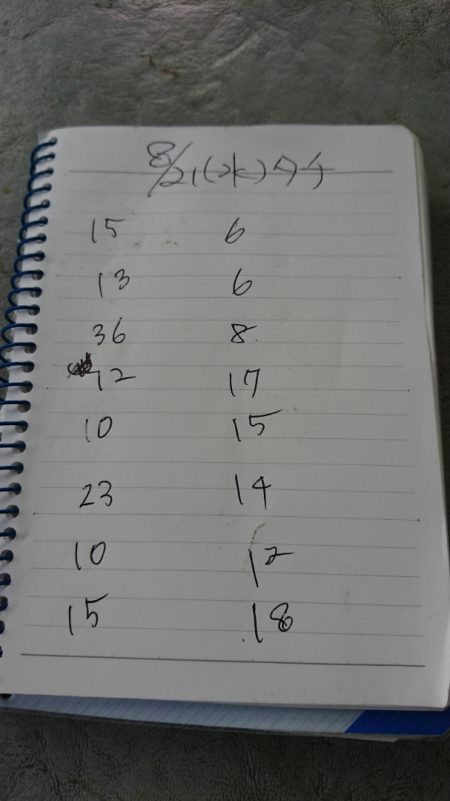 8/21(水)タチ
15 6
13 6
36 8
12 17
10 15
23 14
10 12
15 18